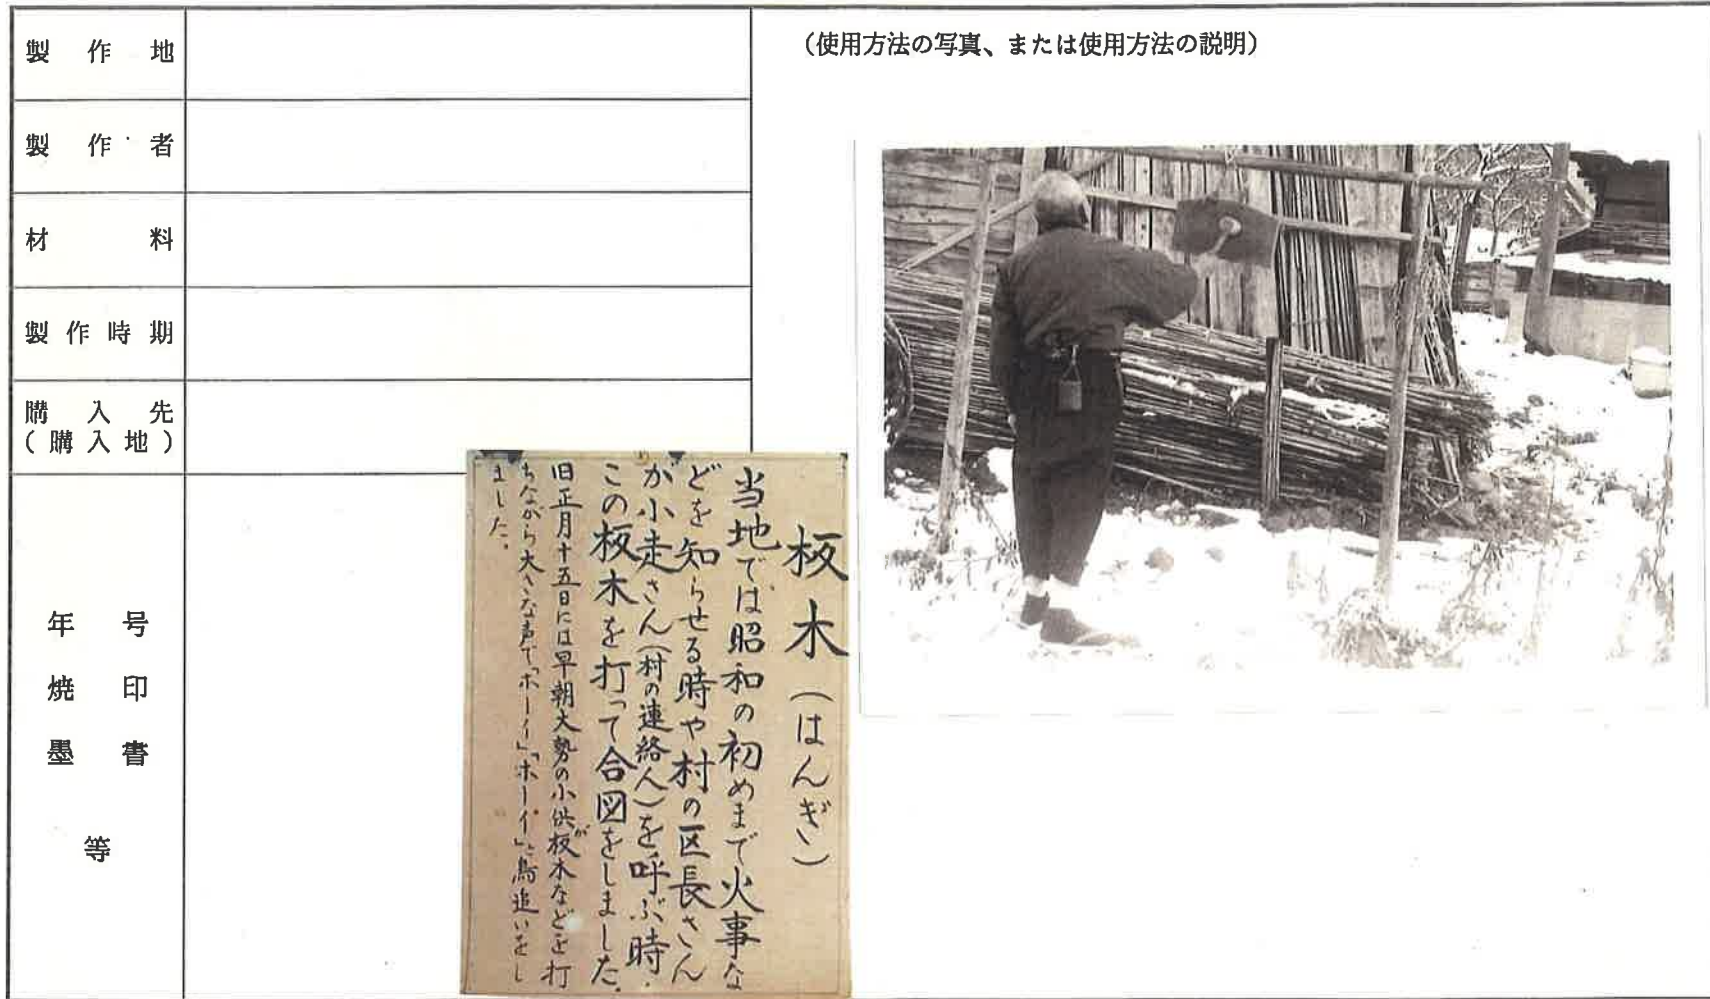 製作地
製作者
材料
製作時期
購入先
(購入地)
年号
焼印
墨書
等
(使用方法の写真、または使用方法の説明)
板木(はんぎ)
当地では昭和の初めまで火事な
どを知らせる時や村の区長さん
が小走さん(村の連絡人)を呼ぶ時、
この板木を打って合図をしました。
旧正月十五日には早朝大勢の小供が板木などを打
ちながら大きな声で「ホーイ」「ホーイ」と鳥追いをし
ました。